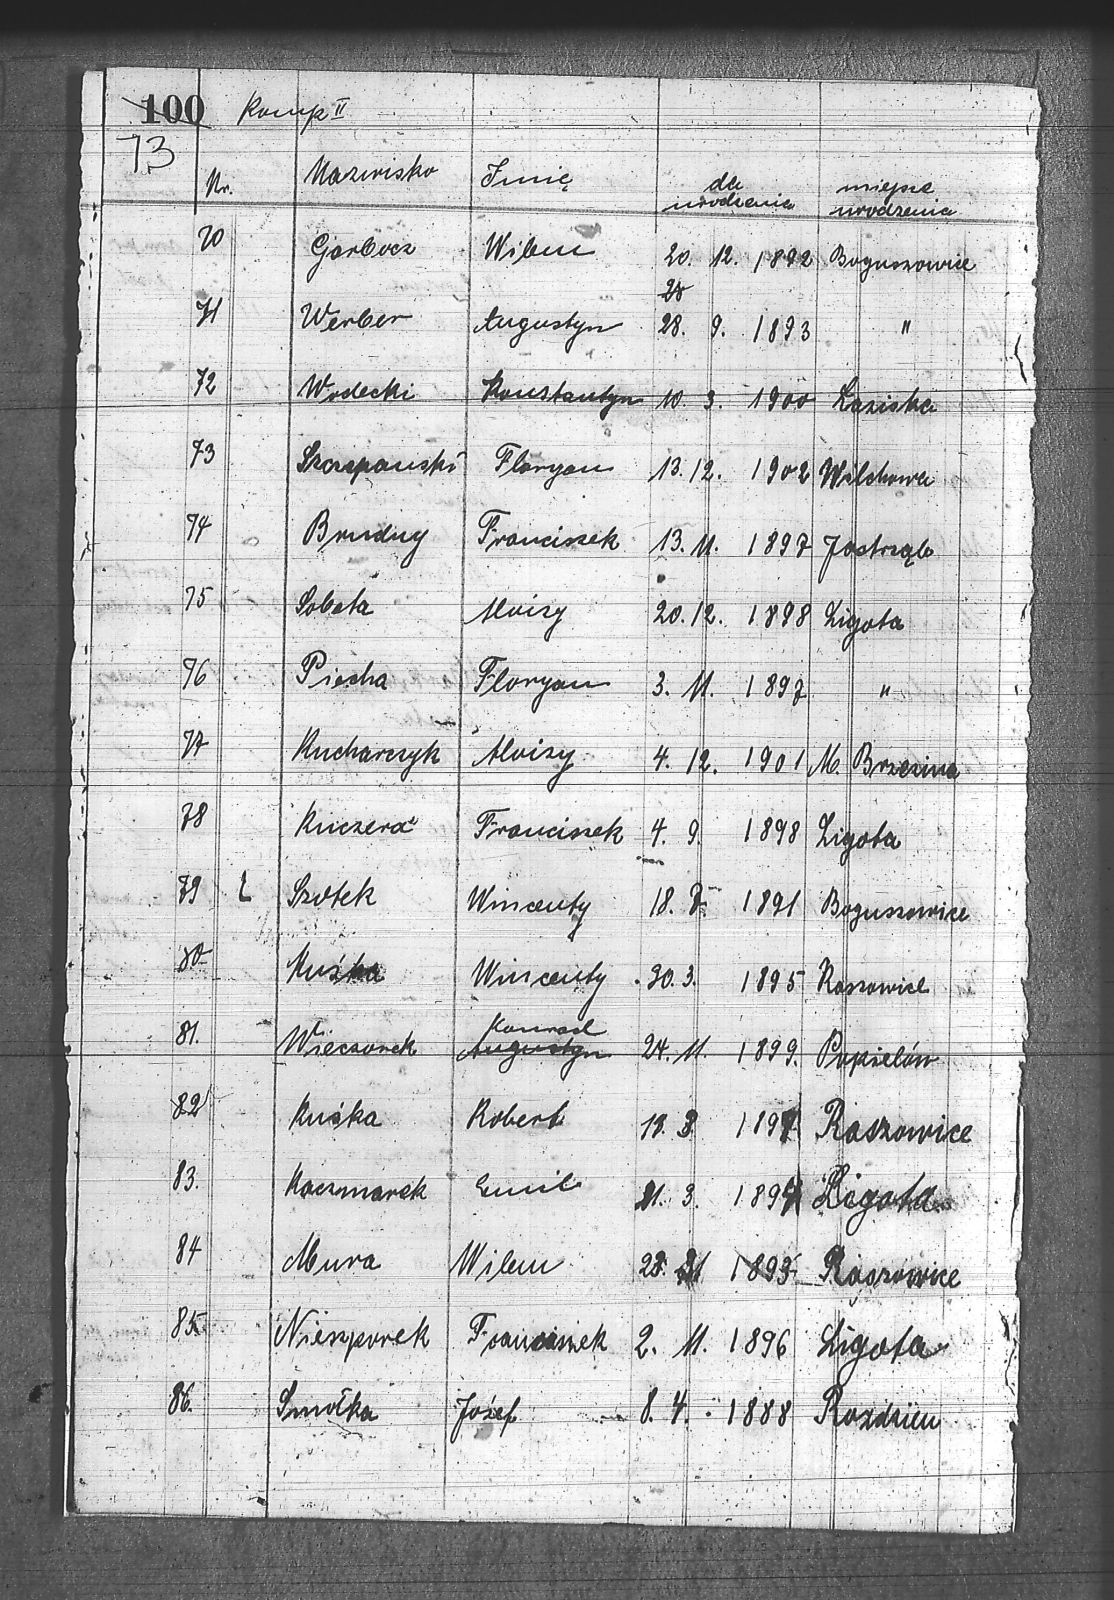 100 Komp II
73
Nr. Nazwisko Imię dta urodzenia miejsce urodzenia
70 Garbocz Wilem 20. 12. 1892 Boguszowice
28
71 Werber Augustyn 28. 9. 1893 "
72 Wodecki Konstantyn 10 3. 1900 Laziska
73 Szczepanski Floryan 13. 12. 1902 Wilchowa
74 Brudny Franciszek 13. 11. 1897 Jastrząb
75 Sobota Aloizy 20. 12. 1898 Ligota
76 Piecha Floryan 3. 11. 1897 "
77 Kucharczyk Aloizy 4. 12. 1901 M. Brzezina
78 Kuczera Franciszek 4. 9. 1898 Ligota
79 Szotek Wincenty 18. 7. 1891 Boguszowice
80 Kuśka Wincenty 30. 3. 1895 Roszowice
Konrad
81. Wieczorek Augustyn 24. 11. 1899. Popielów
82 Kuśka Robert 18. 3 1897 Raszowice
83. Kaczmarek Emil 21. 3. 1894 Ligota
84 Mura Wilem 28. 1895 Raszowice
85 Nieszporek Franciszek 2. 11. 1896 Ligota
86. Smołka Józef 8. 4. 1888 Rozdzień